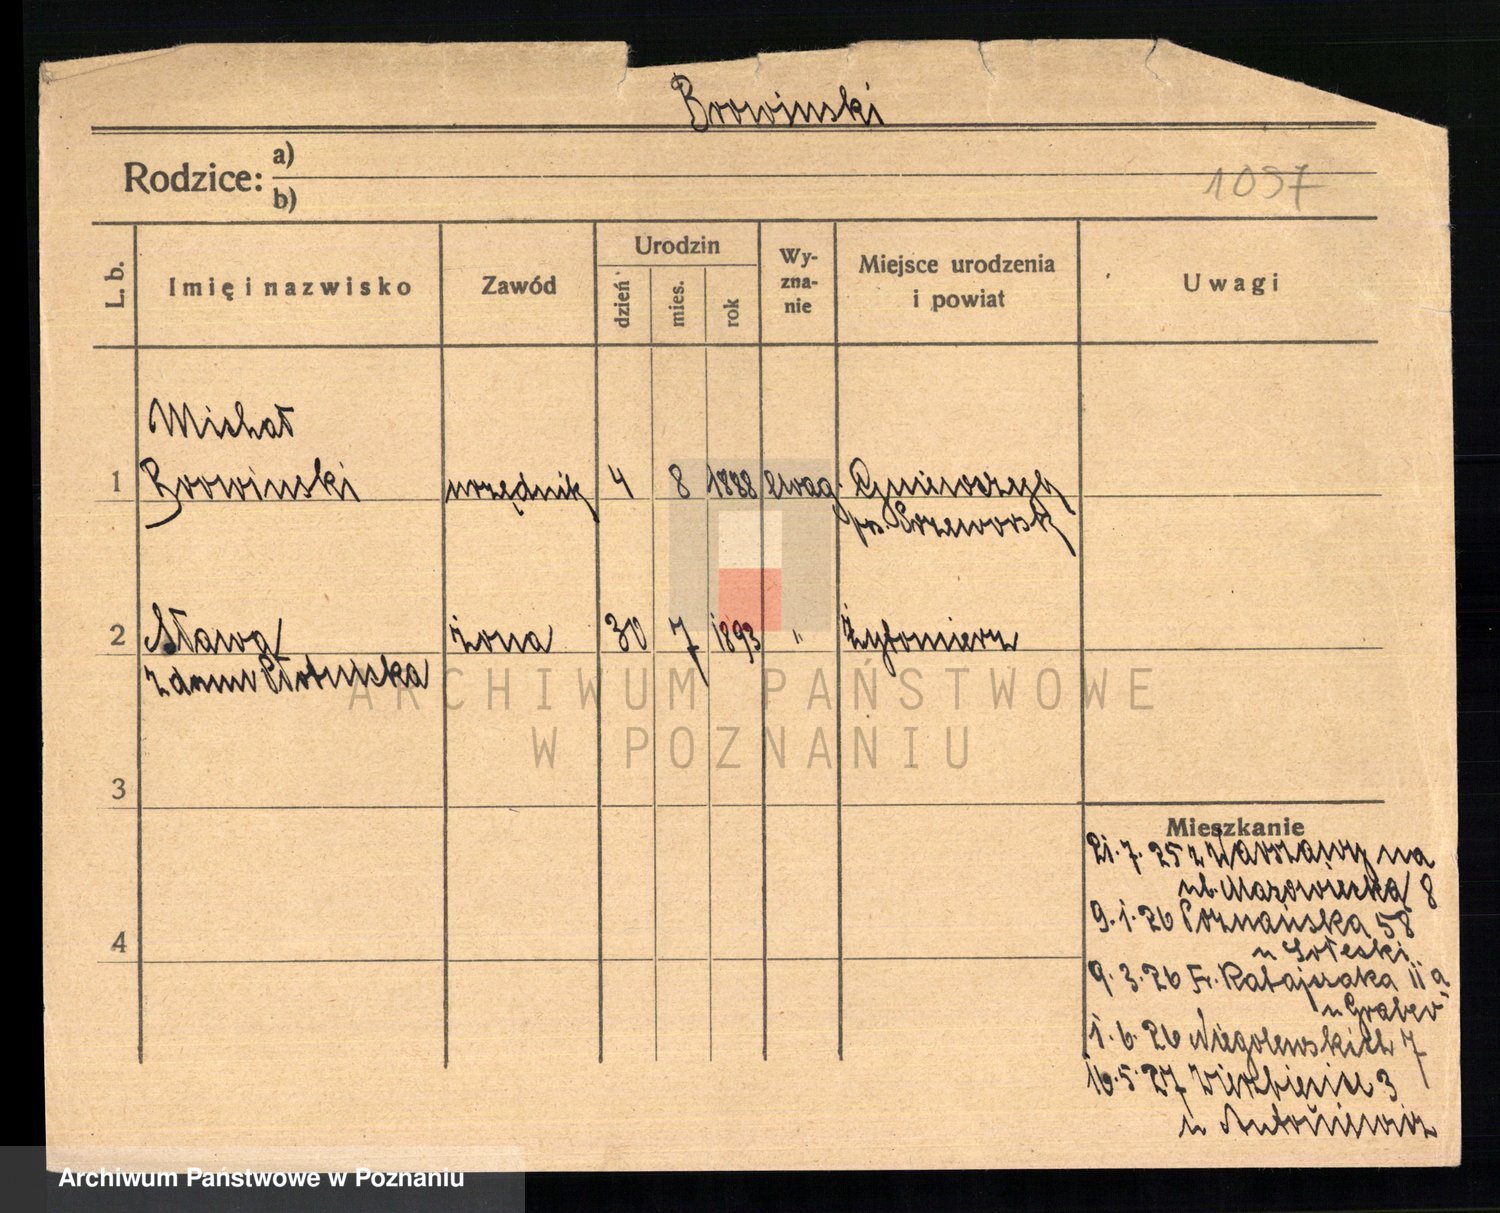 Browinski
Rodzice: a)
b)
1097
L. b.
Imię i nazwisko
Zawód
Urodzin
dzień
mies.
rok
Wy-
zna-
nie
Miejsce urodzenia
i powiat
Uwagi
Michał
1 Browinski urzędnik 4 8 1888 Gniewczyn
pow. Przeworsk
2 Sława żona 30 7 1893 " Żytomierz
z domu
ARCHIWUM PAŃSTWOWE
W POZNANIU
3
Mieszkanie
21.7.25 z Warszawy na
ul. Mazowiecka 8
4
9.1.26 Poznańska 58
u
9.3.26 Fr. Ratajczaka 11a
u Graber
1.6.26 Niegolewskich 7
16.5.27 Wierzbięcice 3
u Antoniewicz
Archiwum Państwowe w Poznaniu